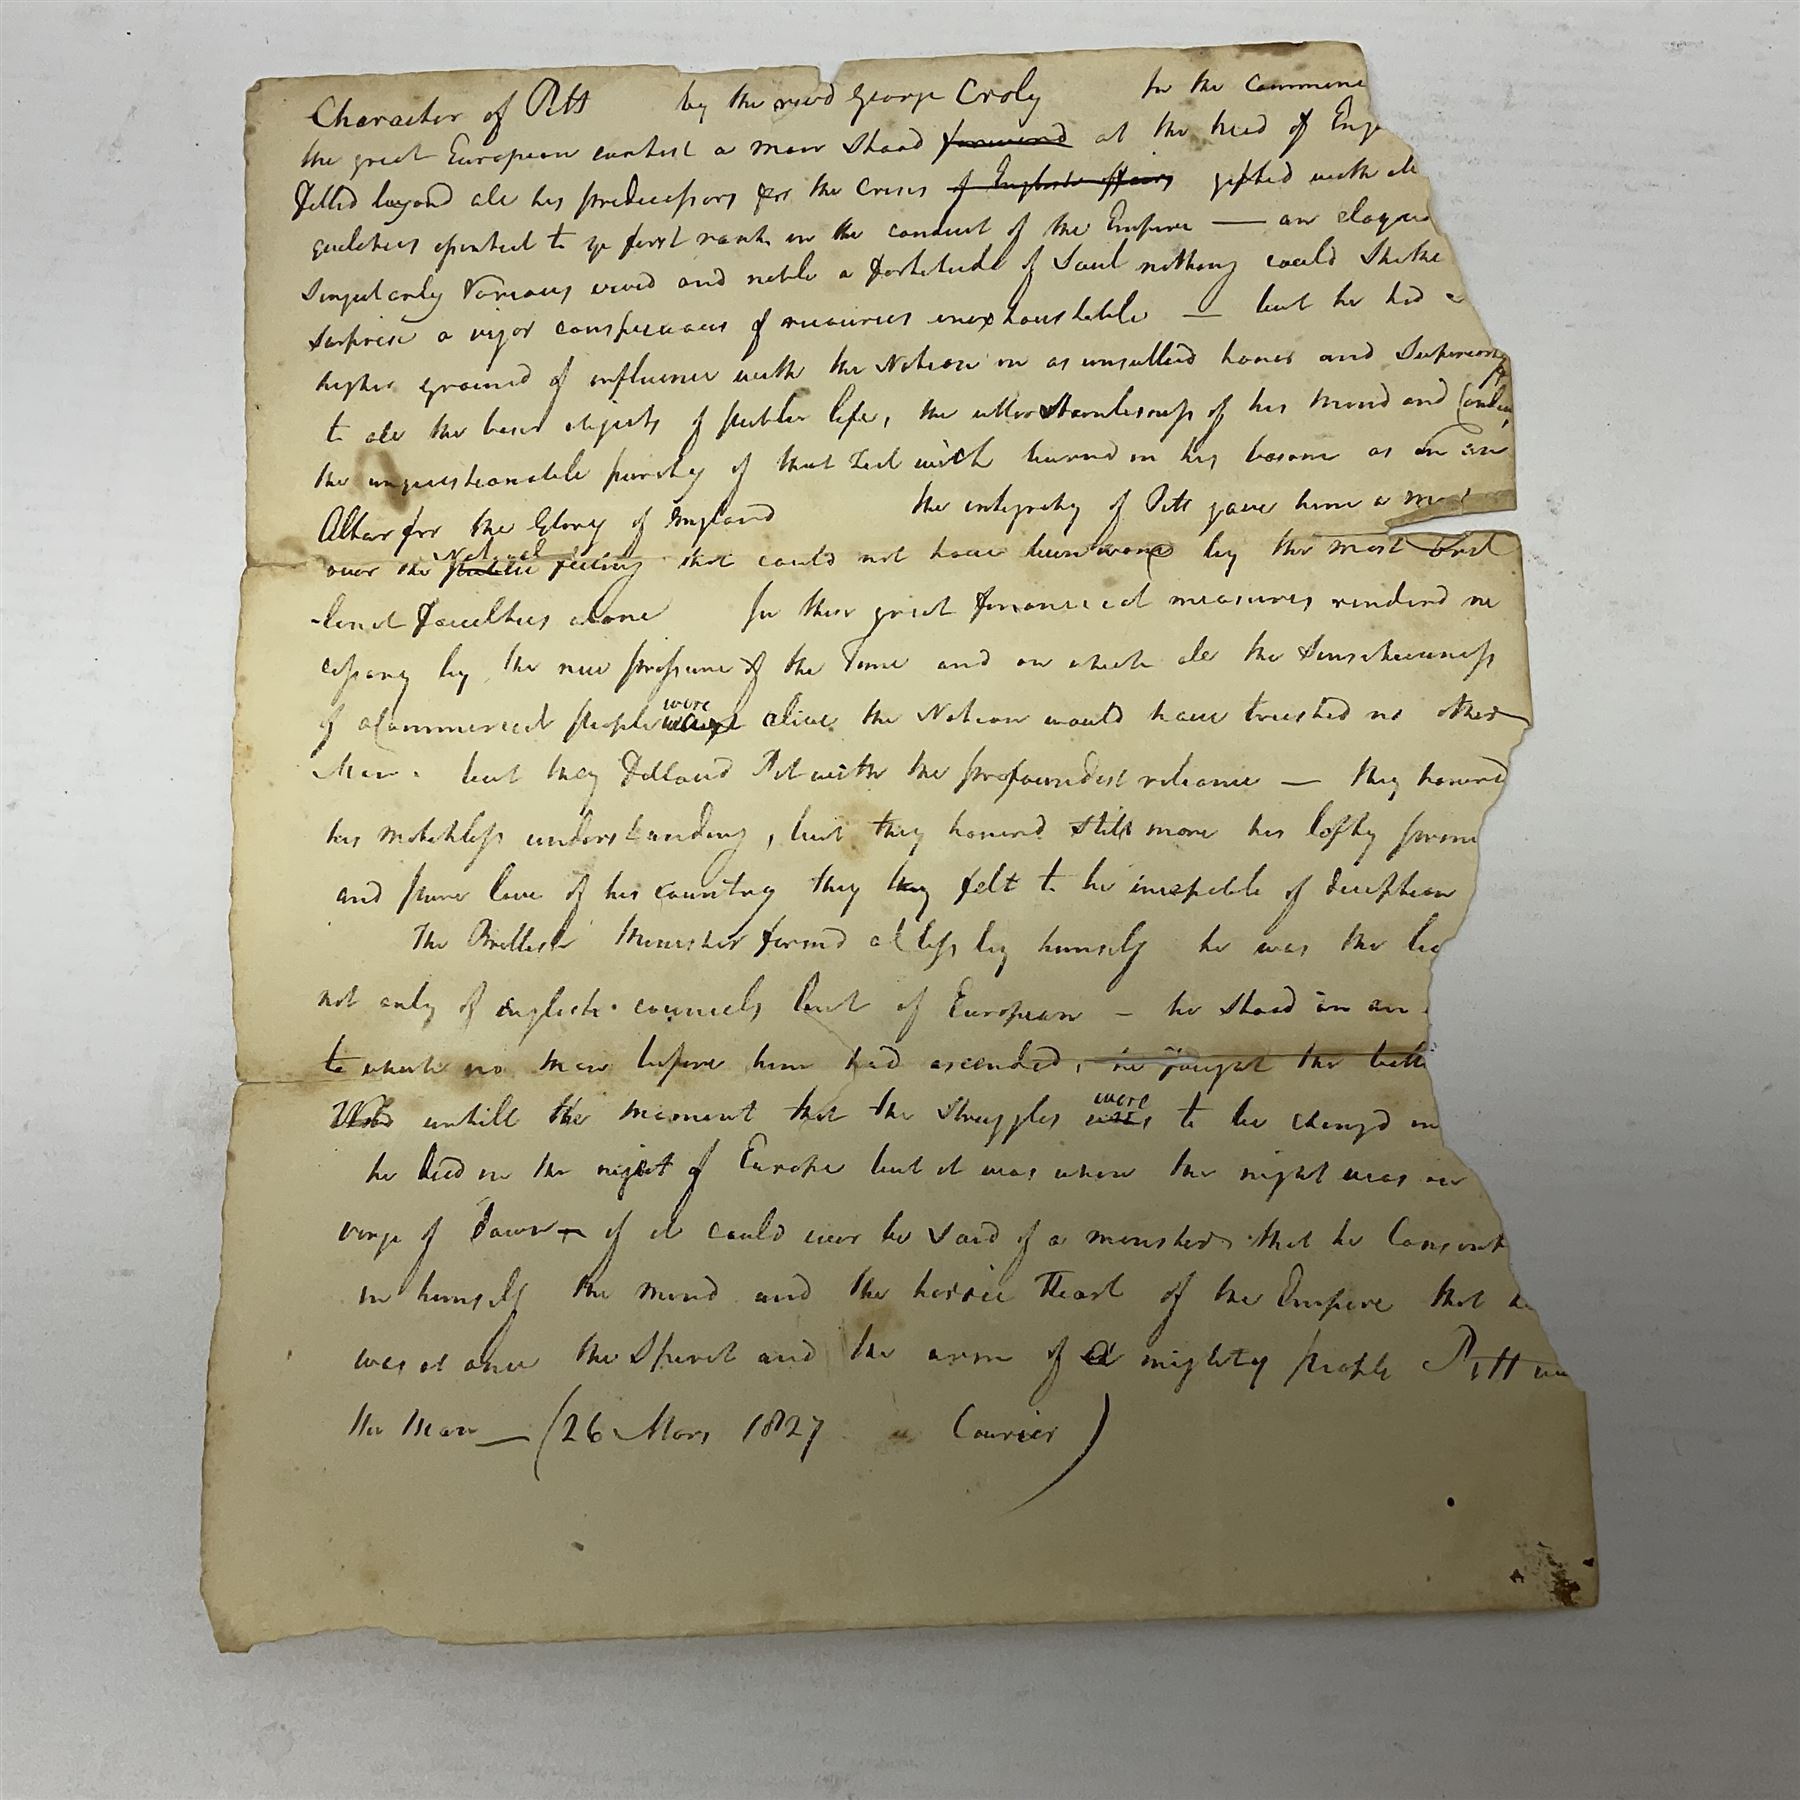 Character of Pitt by the revd George Croly In the commence
the great European contest a man stood forward at the head of Eng
fitted beyond all his predecessors for the crisis of English affairs gifted with all
qualities essential to ye first rank in the conduct of the Empire — an eloque
singularly various vivid and noble a fortitude of Soul nothing could Shake
surprise a vigor conspicuous of resources inexhaustible — but he had
higher ground of influence with the Nation in as unsullied honor and Superiority
to all the baser objects of public life, the utter Stainlessness of his mind and
the unquestionable purity of that Zeal wich burned in his bosom as on an
Altar for the Glory of England the integrity of Pitt gave him a
over the public National feeling that could not have been wone by the most bril
-liant faculties alone In those great financial measures renderd ne
cessary by the new pressure of the Time and on which all the Sensitiveness
of a Commercial people were alive the Nation would have trusted no other
Man. but they followd Pit with the profoundest reliance — they honord
his matchless understanding, but they honord Still more his lofty
and pure love of his country they they felt to be incapable of deception
The Brittish Minister formd a Class by himself he was the
not only of english councels but of European — he stood in an
to which no man before him had ascended, he fought the
untill the moment that the Struggles were to be changd in
he died in the night of Europe but it was when the night was
verge of Dawn — if it could ever be Said of a minister that he
in himself the mind and the heroic Heart of the Empire that he
was at once the Spirit and the arm of a mighty people Pitt
the Man — (26 Mars 1827 Courier)